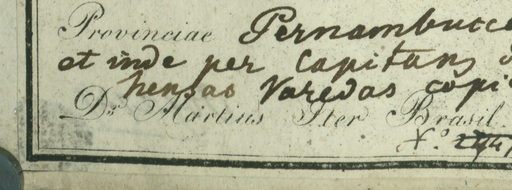 Provinciae Pernambucc
et inde per Capitans
hensao Varedas copi
Dr. Martius Iter Brasil.
f.º